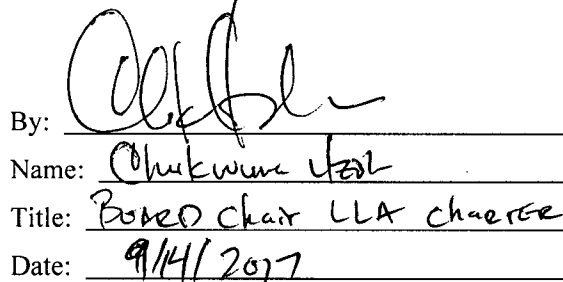 By:
Name: Chukwuma
Title: BOARD Chair LLA CharTER
Date: 9/14/2017